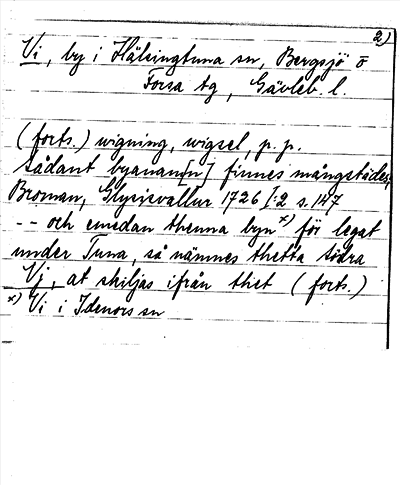 2)
Vi, by i Hälsingtuna sn, Bergsjö o
Forsa tg, Gävleb. l.
(forts.) wigning, wigsel, p. p.
sådant byanam[n] finnes mångstädes,
Broman, Glysisvallur 1726 I:2 s. 147
-- och emedan thenna byn x) för legat
under Tuna, så nämnes thetta södra
Vj, at skiljas ifrån thet (forts.)
x) Vi i Idenors sn